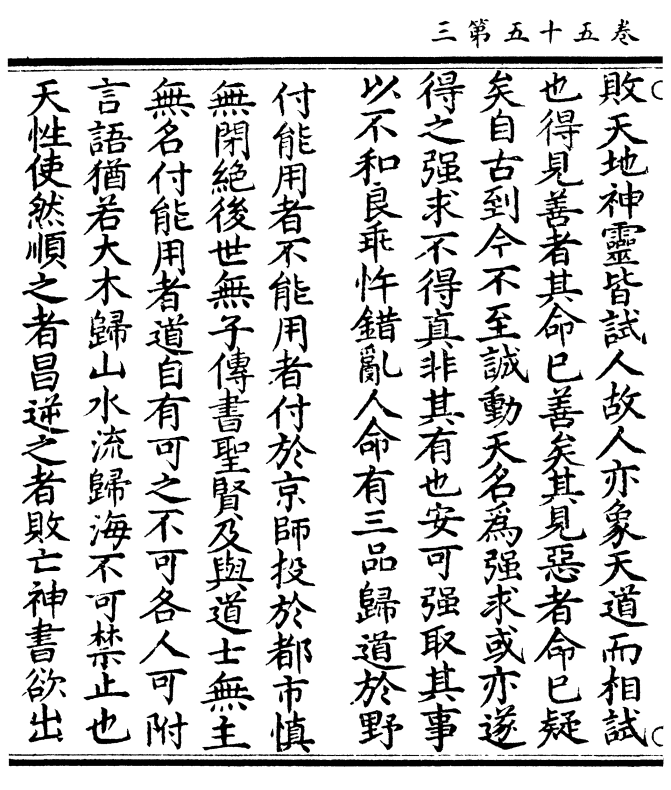 卷五十五第三
敗天地神靈皆試人故人亦象天道而相試
也得見善者其命已善矣其見惡者命已疑
矣自古到今不至誠動天名爲强求或亦遂
得之强求不得真非其有也安可强取其事
以不和良乖忤錯亂人命有三品歸道於野
付能用者不能用者付於京師投於都市慎
無閉絕後世無子傳書聖賢及與道士無主
無名付能用者道自有可之不可各人可附
言語猶若大木歸山水流歸海不可禁止也
天性使然順之者昌逆之者敗亡神書欲出